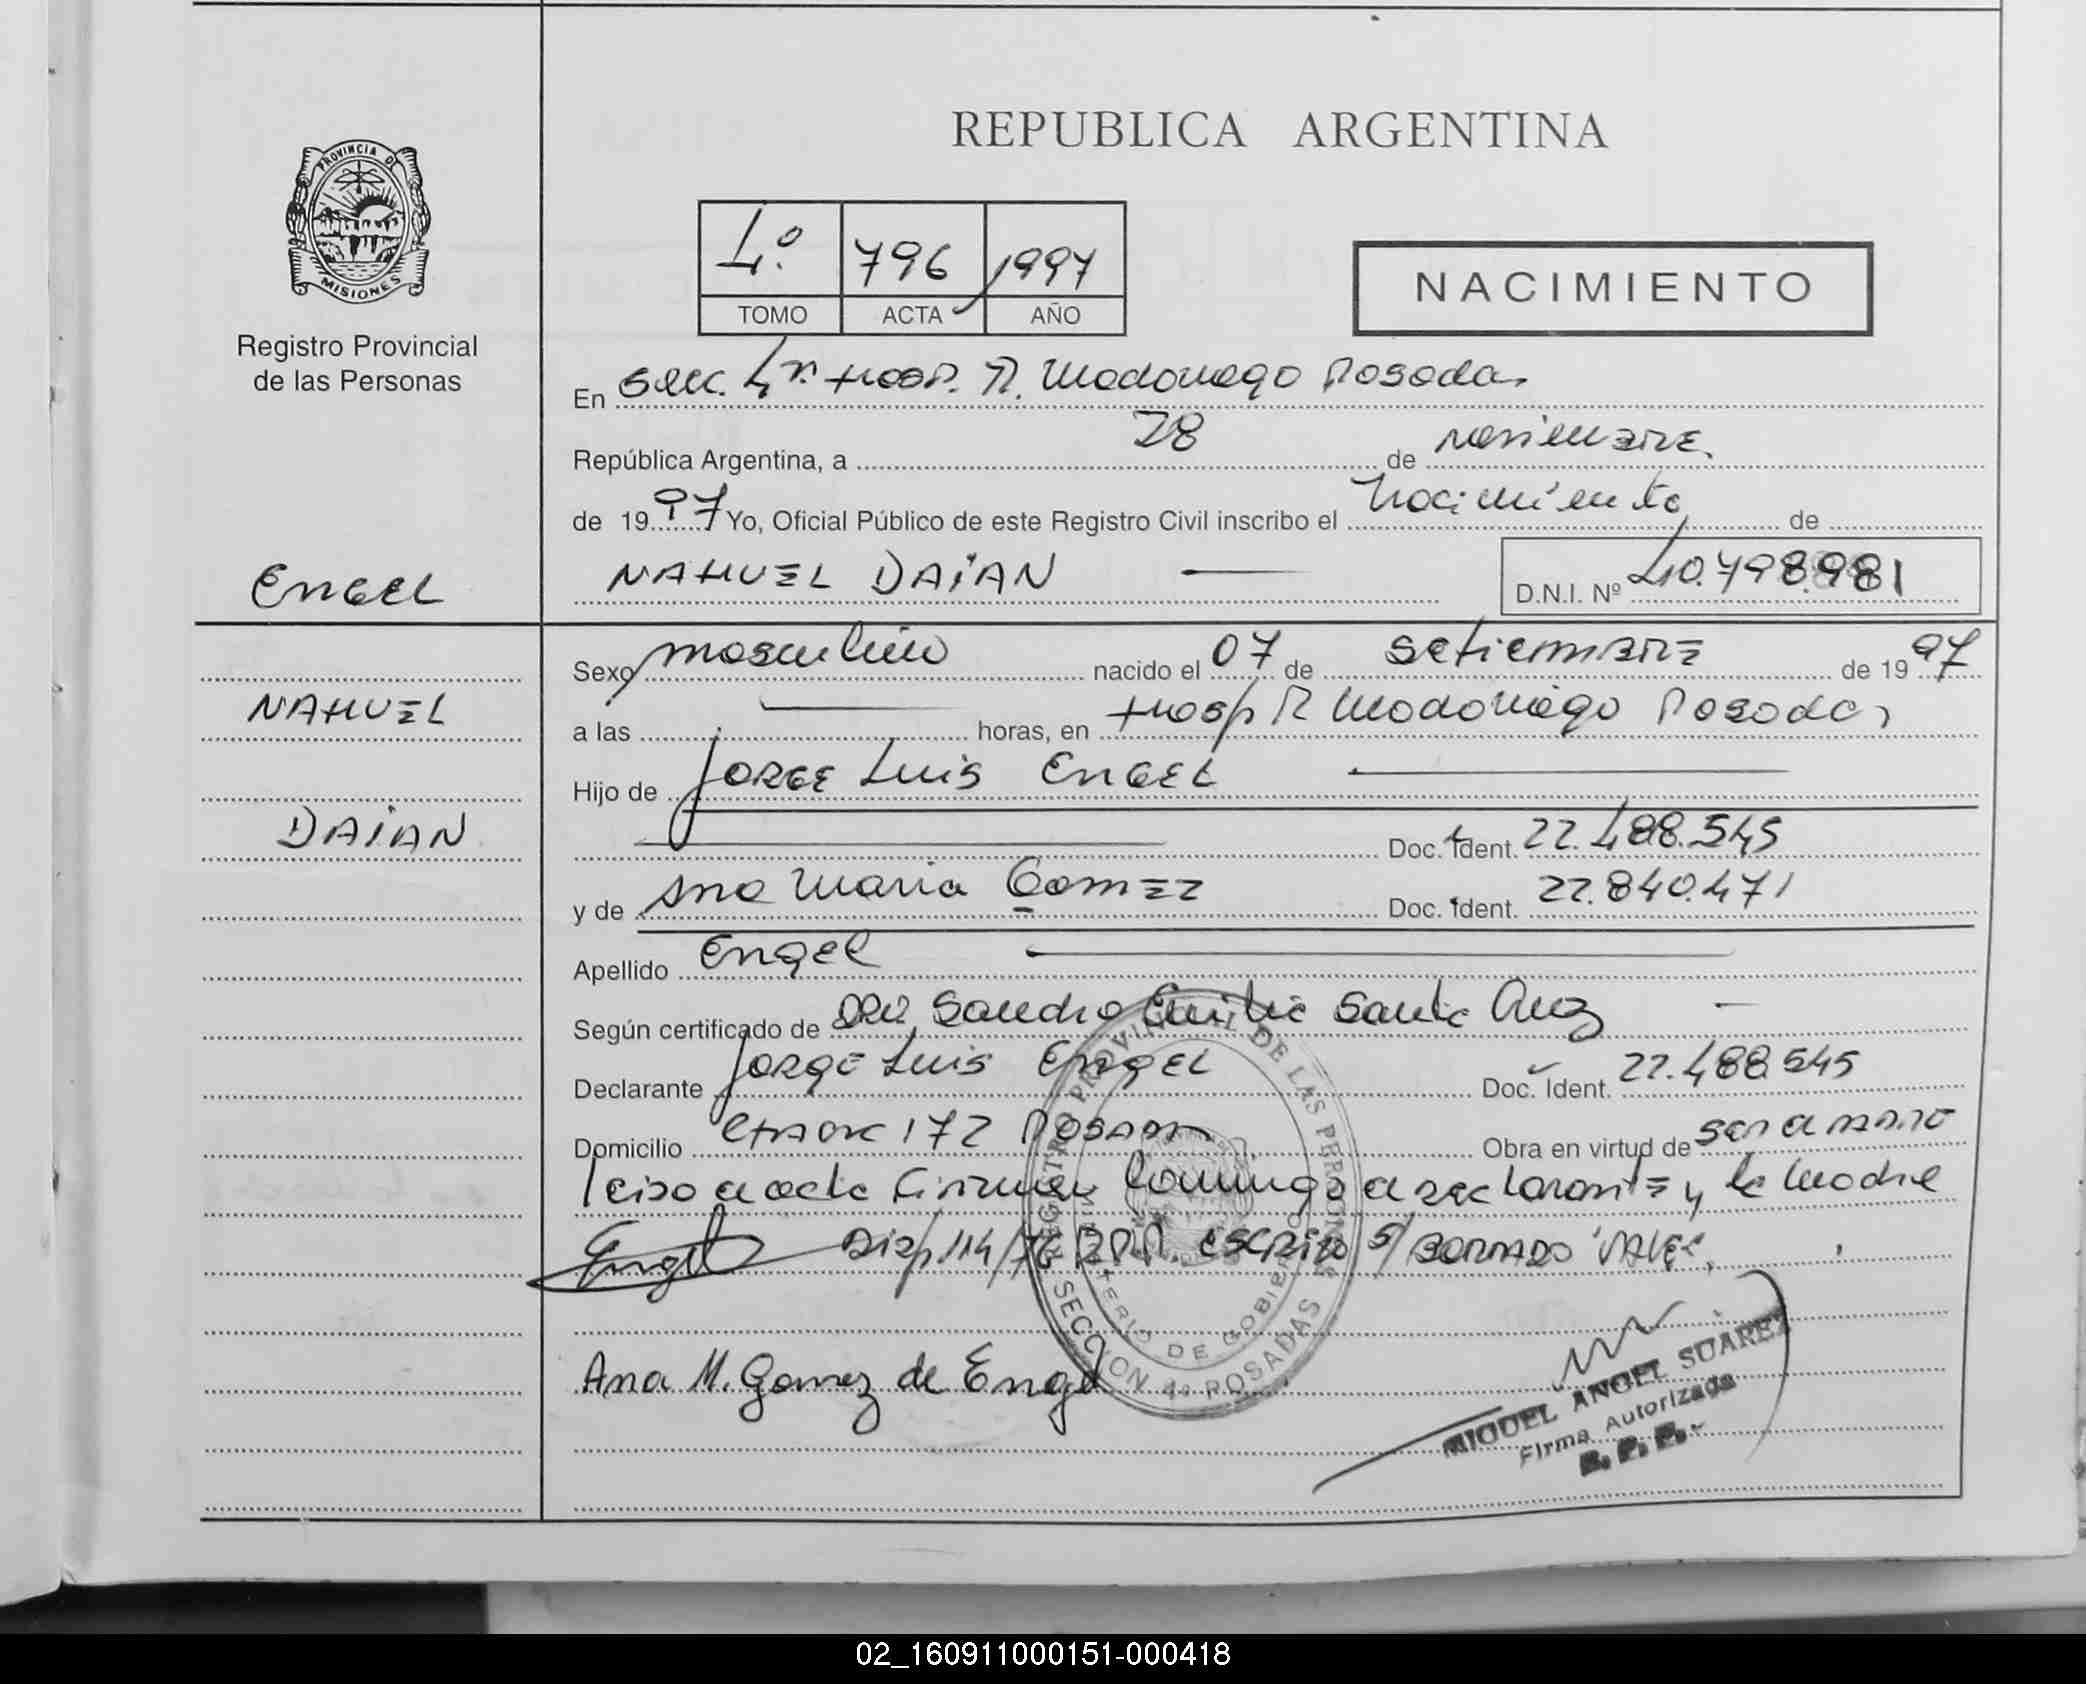 REPUBLICA ARGENTINA
PROVINCIA DE
MISIONES
Registro Provincial
de las Personas
4º 796 1997
TOMO ACTA AÑO
NACIMIENTO
En Secc. 4ª Hosp. R. Madariaga Posadas
República Argentina, a 28 de noviembre
de 1997 Yo, Oficial Público de este Registro Civil inscribo el Nacimiento de
ENGEL
NAHUEL DAIAN
D.N.I. Nº 40.798.981
NAHUEL
DAIAN
Sexo masculino nacido el 07 de setiembre de 1997
a las horas, en Hosp R Madariaga Posadas
Hijo de Jorge Luis Engel
Doc. Ident. 22.488.545
y de Ana Maria Gomez Doc. Ident. 22.840.471
Apellido Engel
Según certificado de Sandra Emilia Santa Cruz
Declarante Jorge Luis Engel Doc. Ident. 22.488.545
Domicilio 172 Posadas Obra en virtud de ser el padre
leida el acta firman conmigo el declarante y la madre
Engel Disp. 114/76 R.P.P. escrito s/ borrado "VALE"
Ana M. Gomez de Engel
REGISTRO PROVINCIAL DE LAS PERSONAS
MINISTERIO DE GOBIERNO
SECCION 4ª POSADAS
MIGUEL ANGEL SUAREZ
Firma Autorizada
R. P. P.
02_160911000151-000418